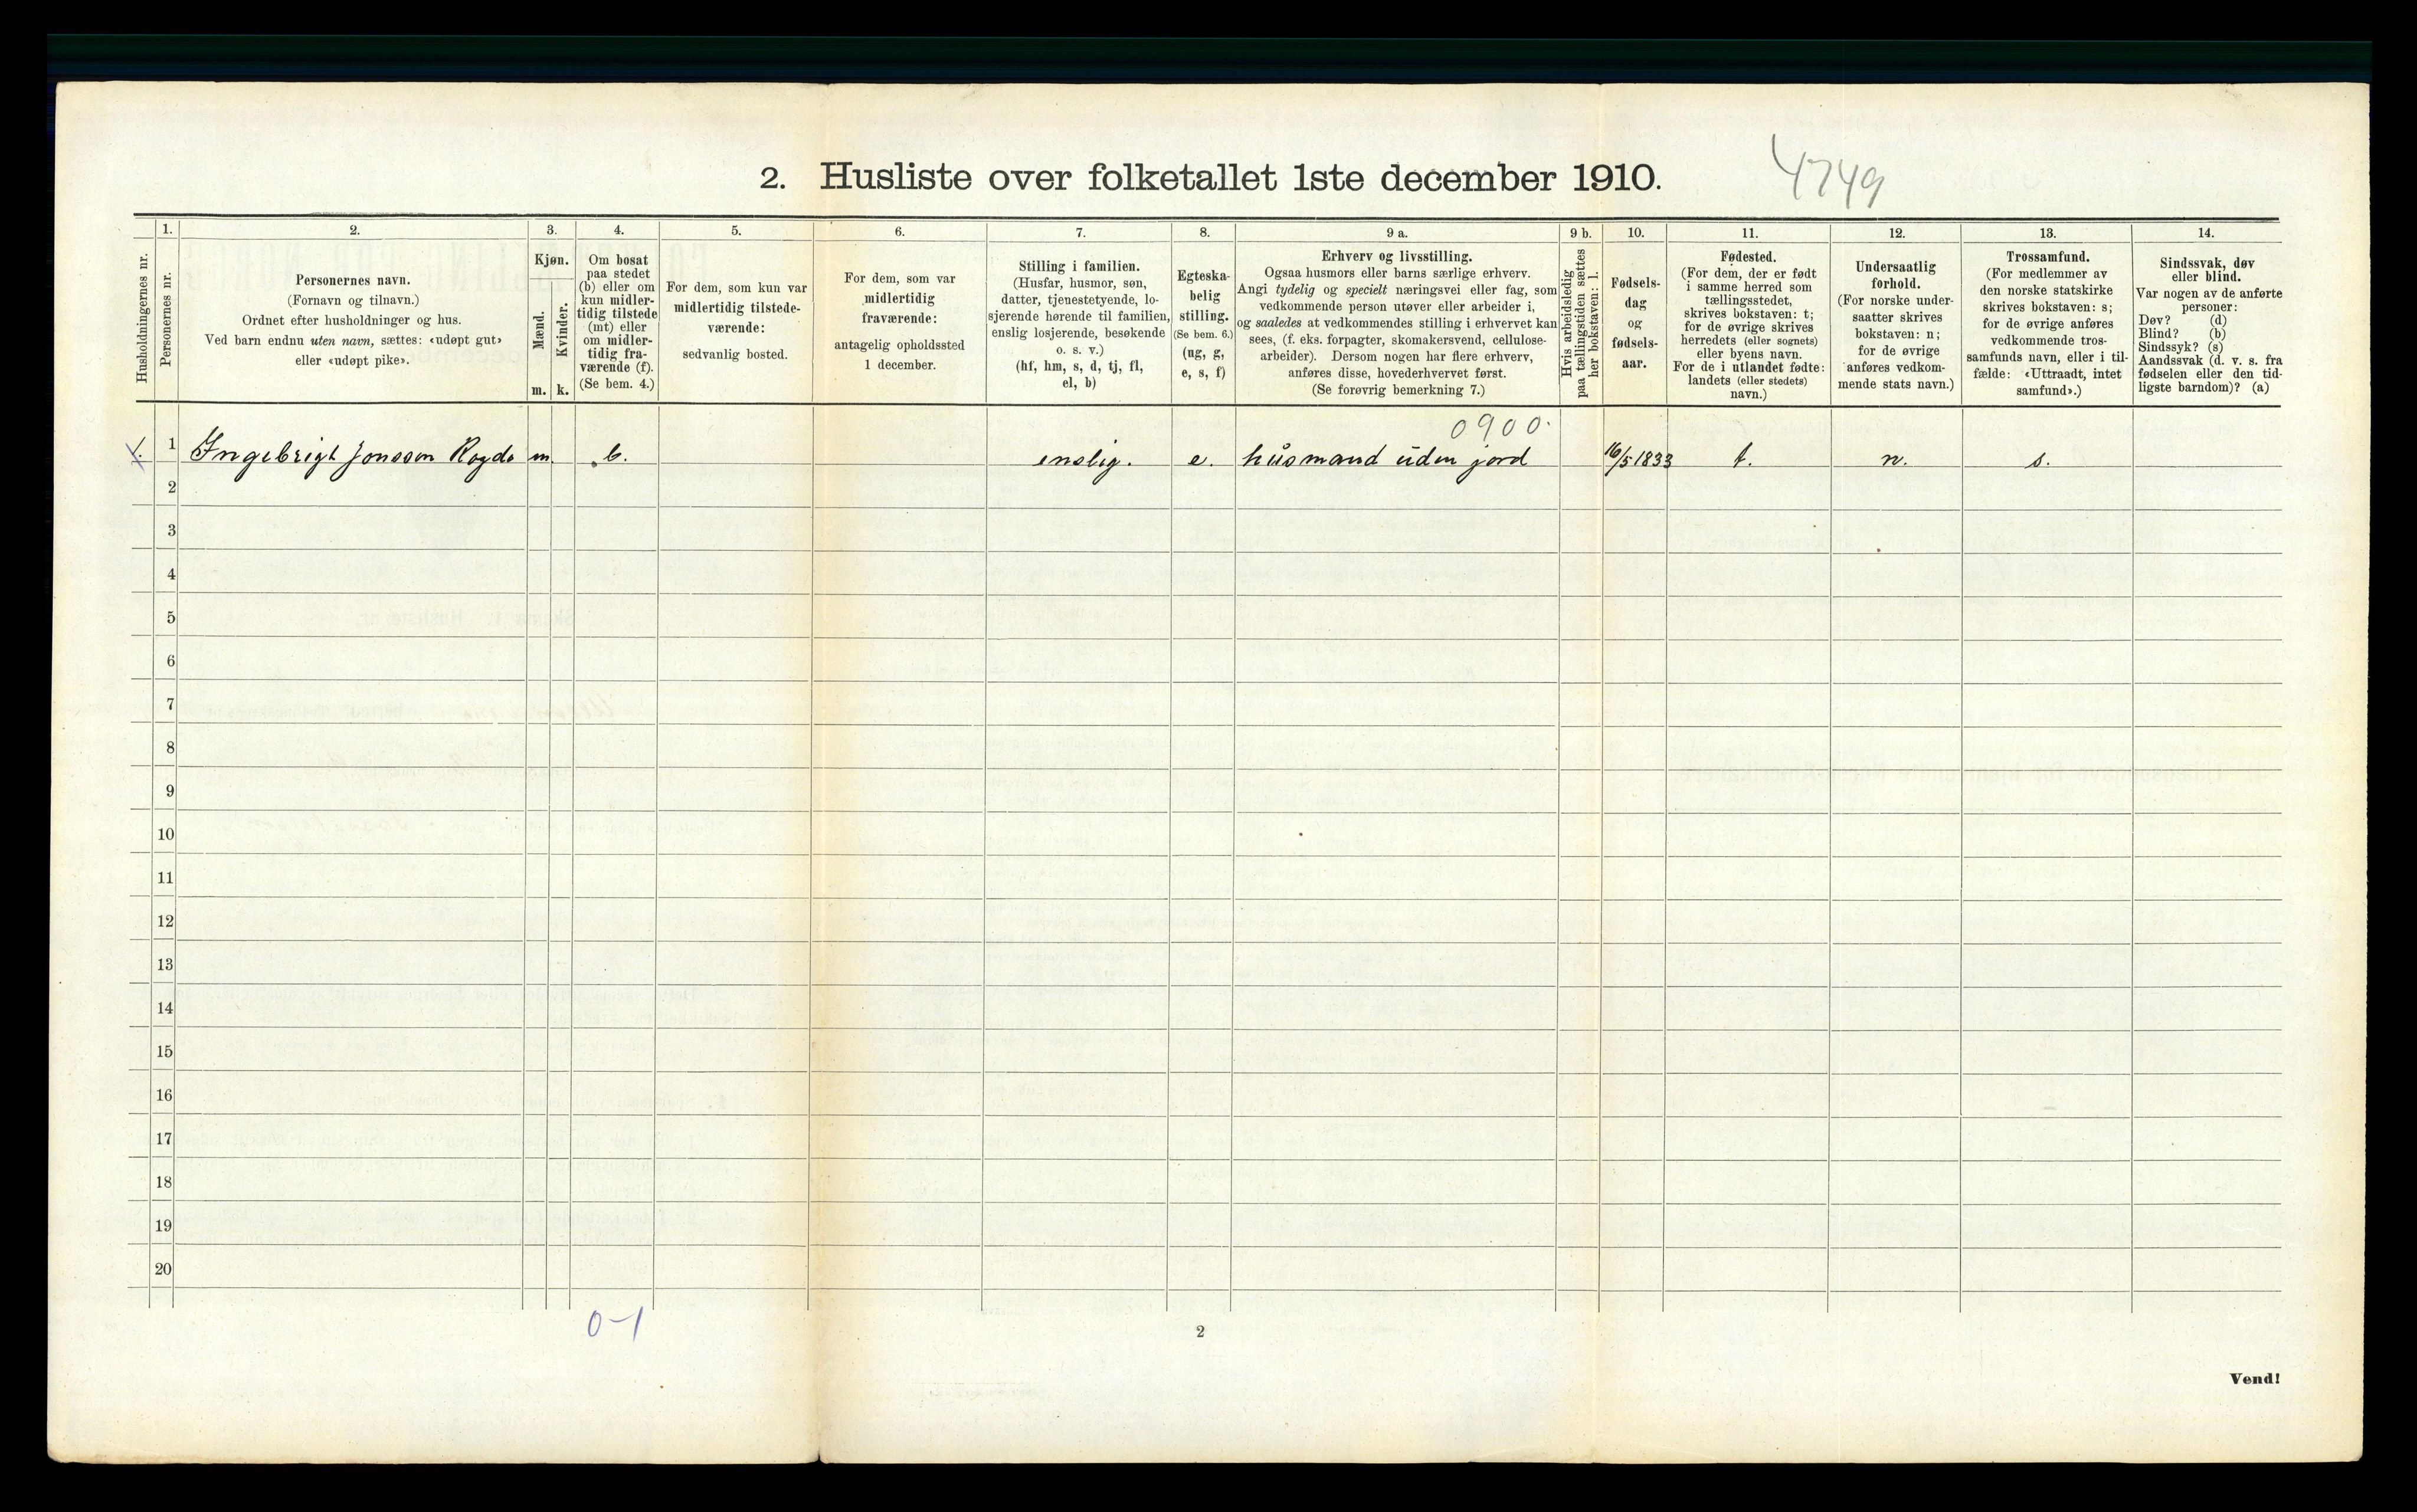 2. Husliste over folketallet 1ste december 1910.
4749
Husholdningernes nr.
1.
Personernes nr.
2.
Personernes navn.
(Fornavn og tilnavn.)
Ordnet efter husholdninger og hus.
Ved barn endnu uten navn, sættes: «udøpt gut»
eller «udøpt pike».
3.
Kjøn.
Mænd.
m.
Kvinder.
k.
4.
Om bosat
paa stedet
(b) eller om
kun midler-
tidig tilstede
(mt) eller
om midler-
tidig fra-
værende (f).
(Se bem. 4.)
5.
For dem, som kun var
midlertidig tilstede-
værende:
sedvanlig bosted.
6.
For dem, som var
midlertidig
fraværende:
antagelig opholdssted
1 december.
7.
Stilling i familien.
(Husfar, husmor, søn,
datter, tjenestetyende, lo-
sjerende hørende til familien,
enslig losjerende, besøkende
o. s. v.)
(hf, hm, s, d, tj, fl,
el, b)
8.
Egteska-
belig
stilling.
(Se bem. 6.)
(ug, g,
e, s, f)
9 a.
Erhverv og livsstilling.
Ogsaa husmors eller barns særlige erhverv.
Angi tydelig og specielt næringsvei eller fag, som
vedkommende person utøver eller arbeider i,
og saaledes at vedkommendes stilling i erhvervet kan
sees, (f. eks. forpagter, skomakersvend, cellulose-
arbeider). Dersom nogen har flere erhverv,
anføres disse, hovederhvervet først.
(Se forøvrig bemerkning 7.)
9 b.
Hvis arbeidsledig
paa tællingstiden sættes
her bokstaven: l.
10.
Fødsels-
dag
og
fødsels-
aar.
11.
Fødested.
(For dem, der er født
i samme herred som
tællingsstedet,
skrives bokstaven: t;
for de øvrige skrives
herredets (eller sognets)
eller byens navn.
For de i utlandet fødte:
landets (eller stedets)
navn.)
12.
Undersaatlig
forhold.
(For norske under-
saatter skrives
bokstaven: n;
for de øvrige
anføres vedkom-
mende stats navn.)
13.
Trossamfund.
(For medlemmer av
den norske statskirke
skrives bokstaven: s;
for de øvrige anføres
vedkommende tros-
samfunds navn, eller i til-
fælde: «Uttraadt, intet
samfund».)
14.
Sindssvak, døv
eller blind.
Var nogen av de anførte
personer:
Døv? (d)
Blind? (b)
Sindssyk? (s)
Aandssvak (d. v. s. fra
fødselen eller den tid-
ligste barndom)? (a)
0900.
1. 1 Ingebrigt Jonsson Rogde m. b. enslig. e. husmand uden jord 16/5 1833 t. n. s.
2
3
4
5
6
7
8
9
10
11
12
13
14
15
16
17
18
19
20
0-1
2
Vend!